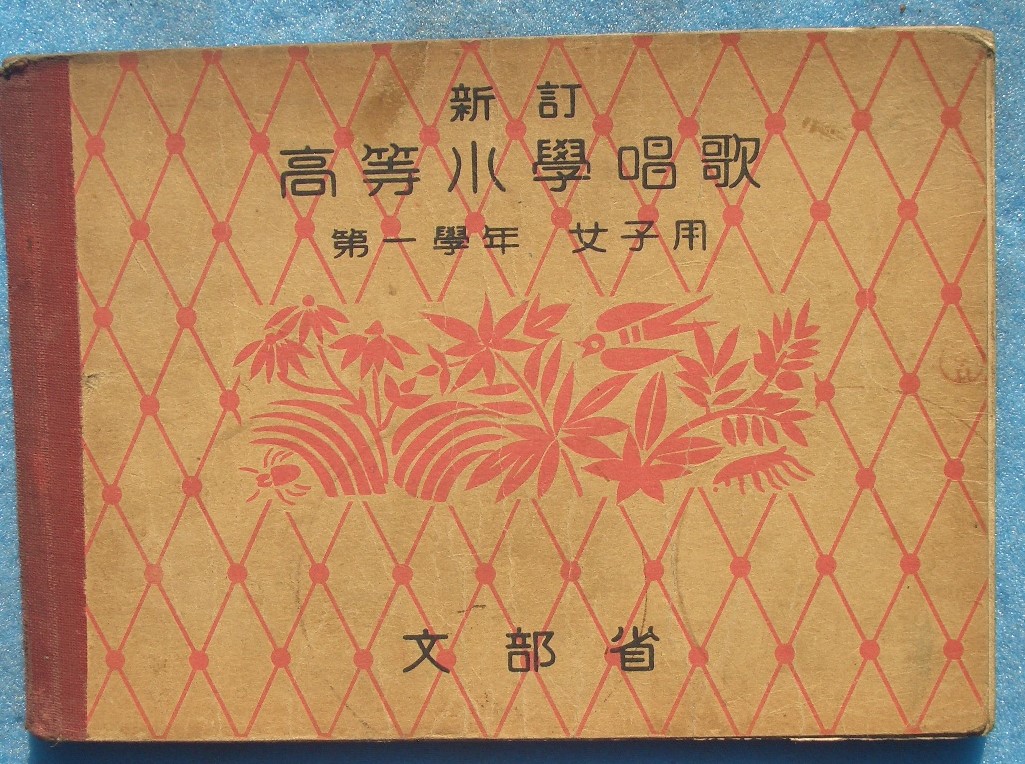 新訂
高等小學唱歌
第一學年 女子用
文部省